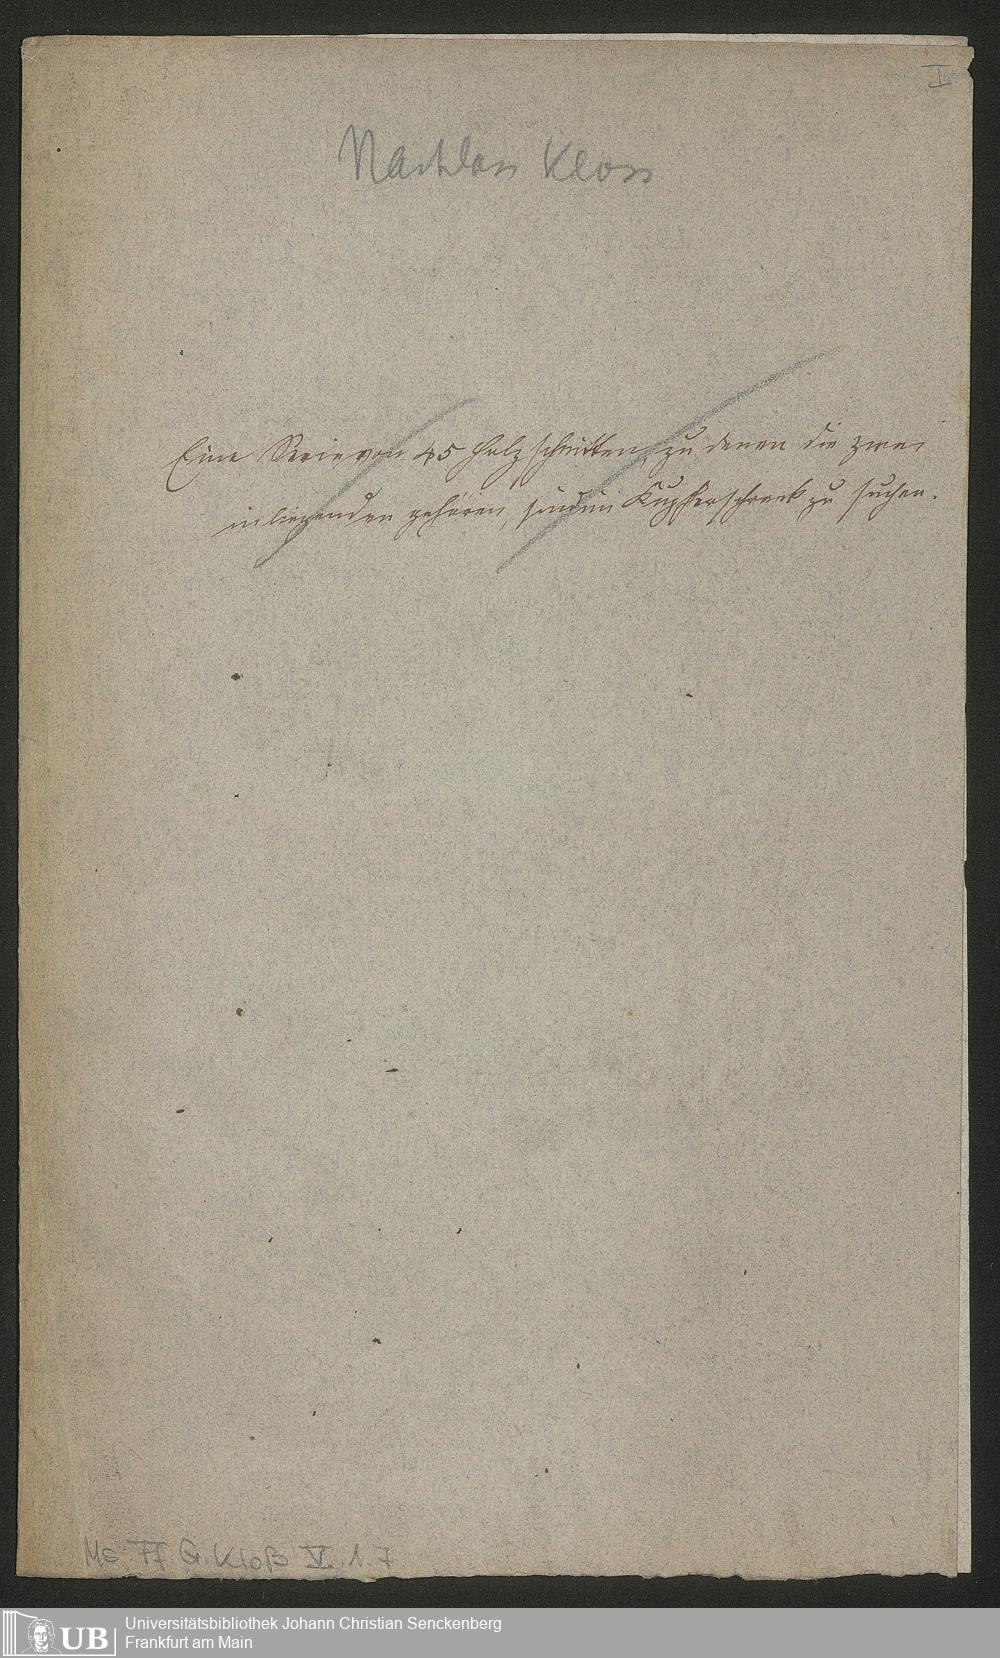 I
Nachlass Kloss
Eine Serie von 45 Holzschnitten, zu denen die zwei
inliegenden gehören, sind im Kupferschrank zu suchen.
Ms. Ff. G. Kloß V. 1. 7
UB
Universitätsbibliothek Johann Christian Senckenberg
Frankfurt am Main